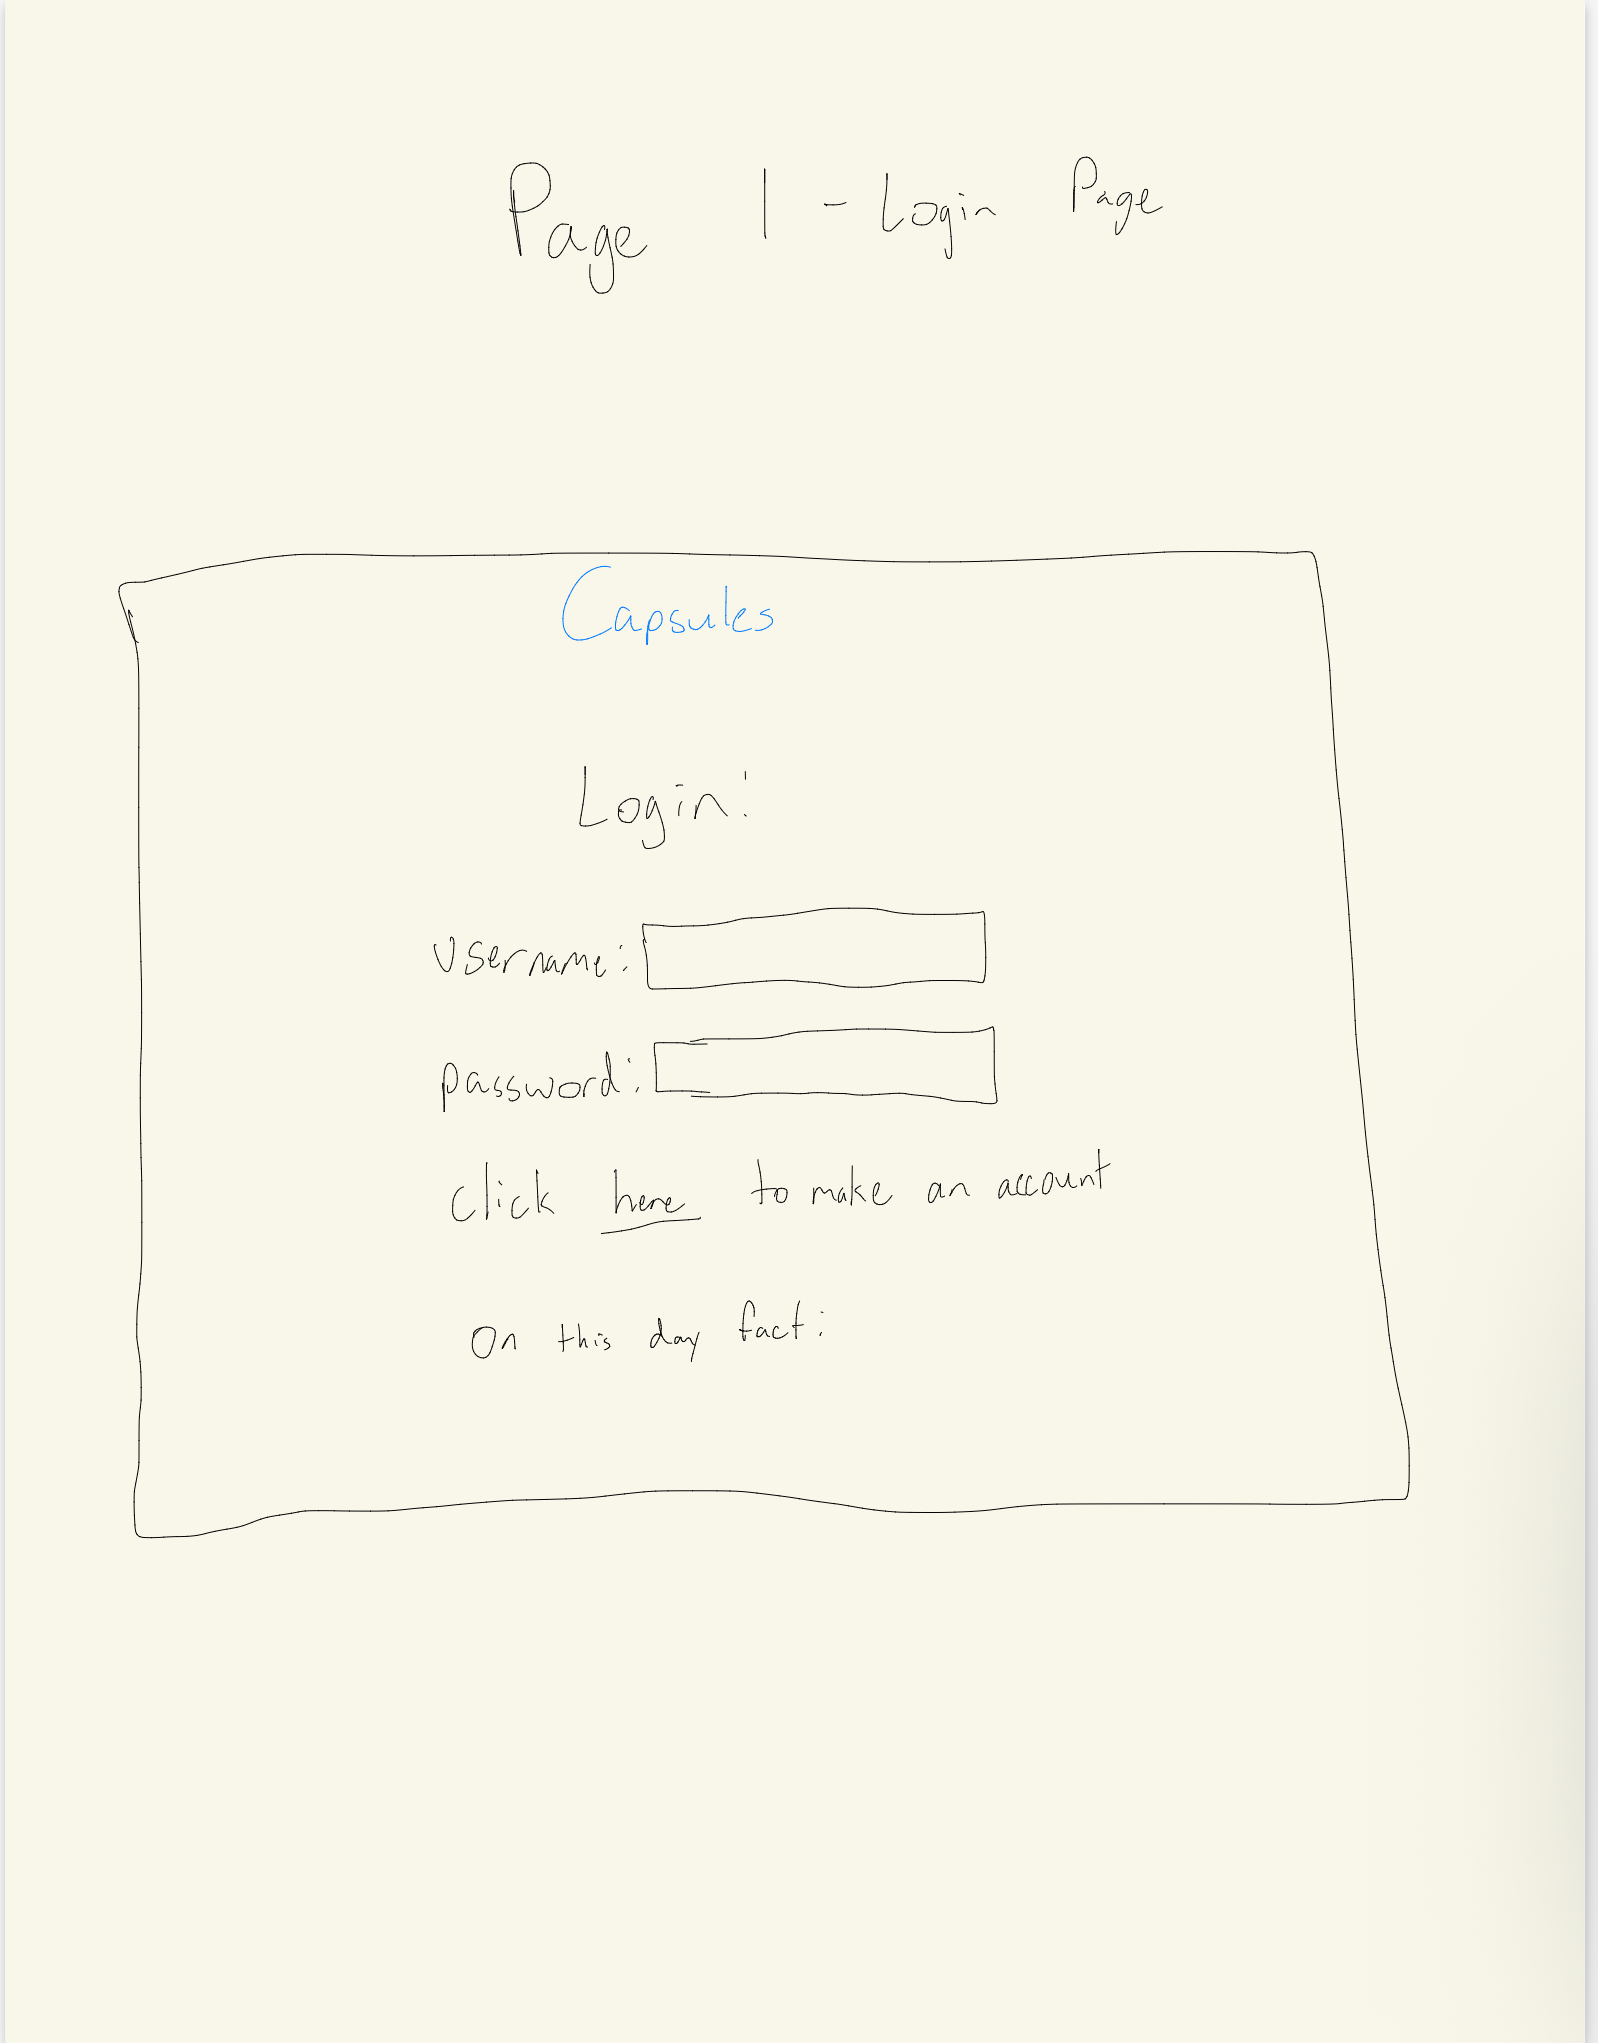 Page 1 - Login Page
Capsules
Login:
Username:
password:
click here to make an account
On this day fact: